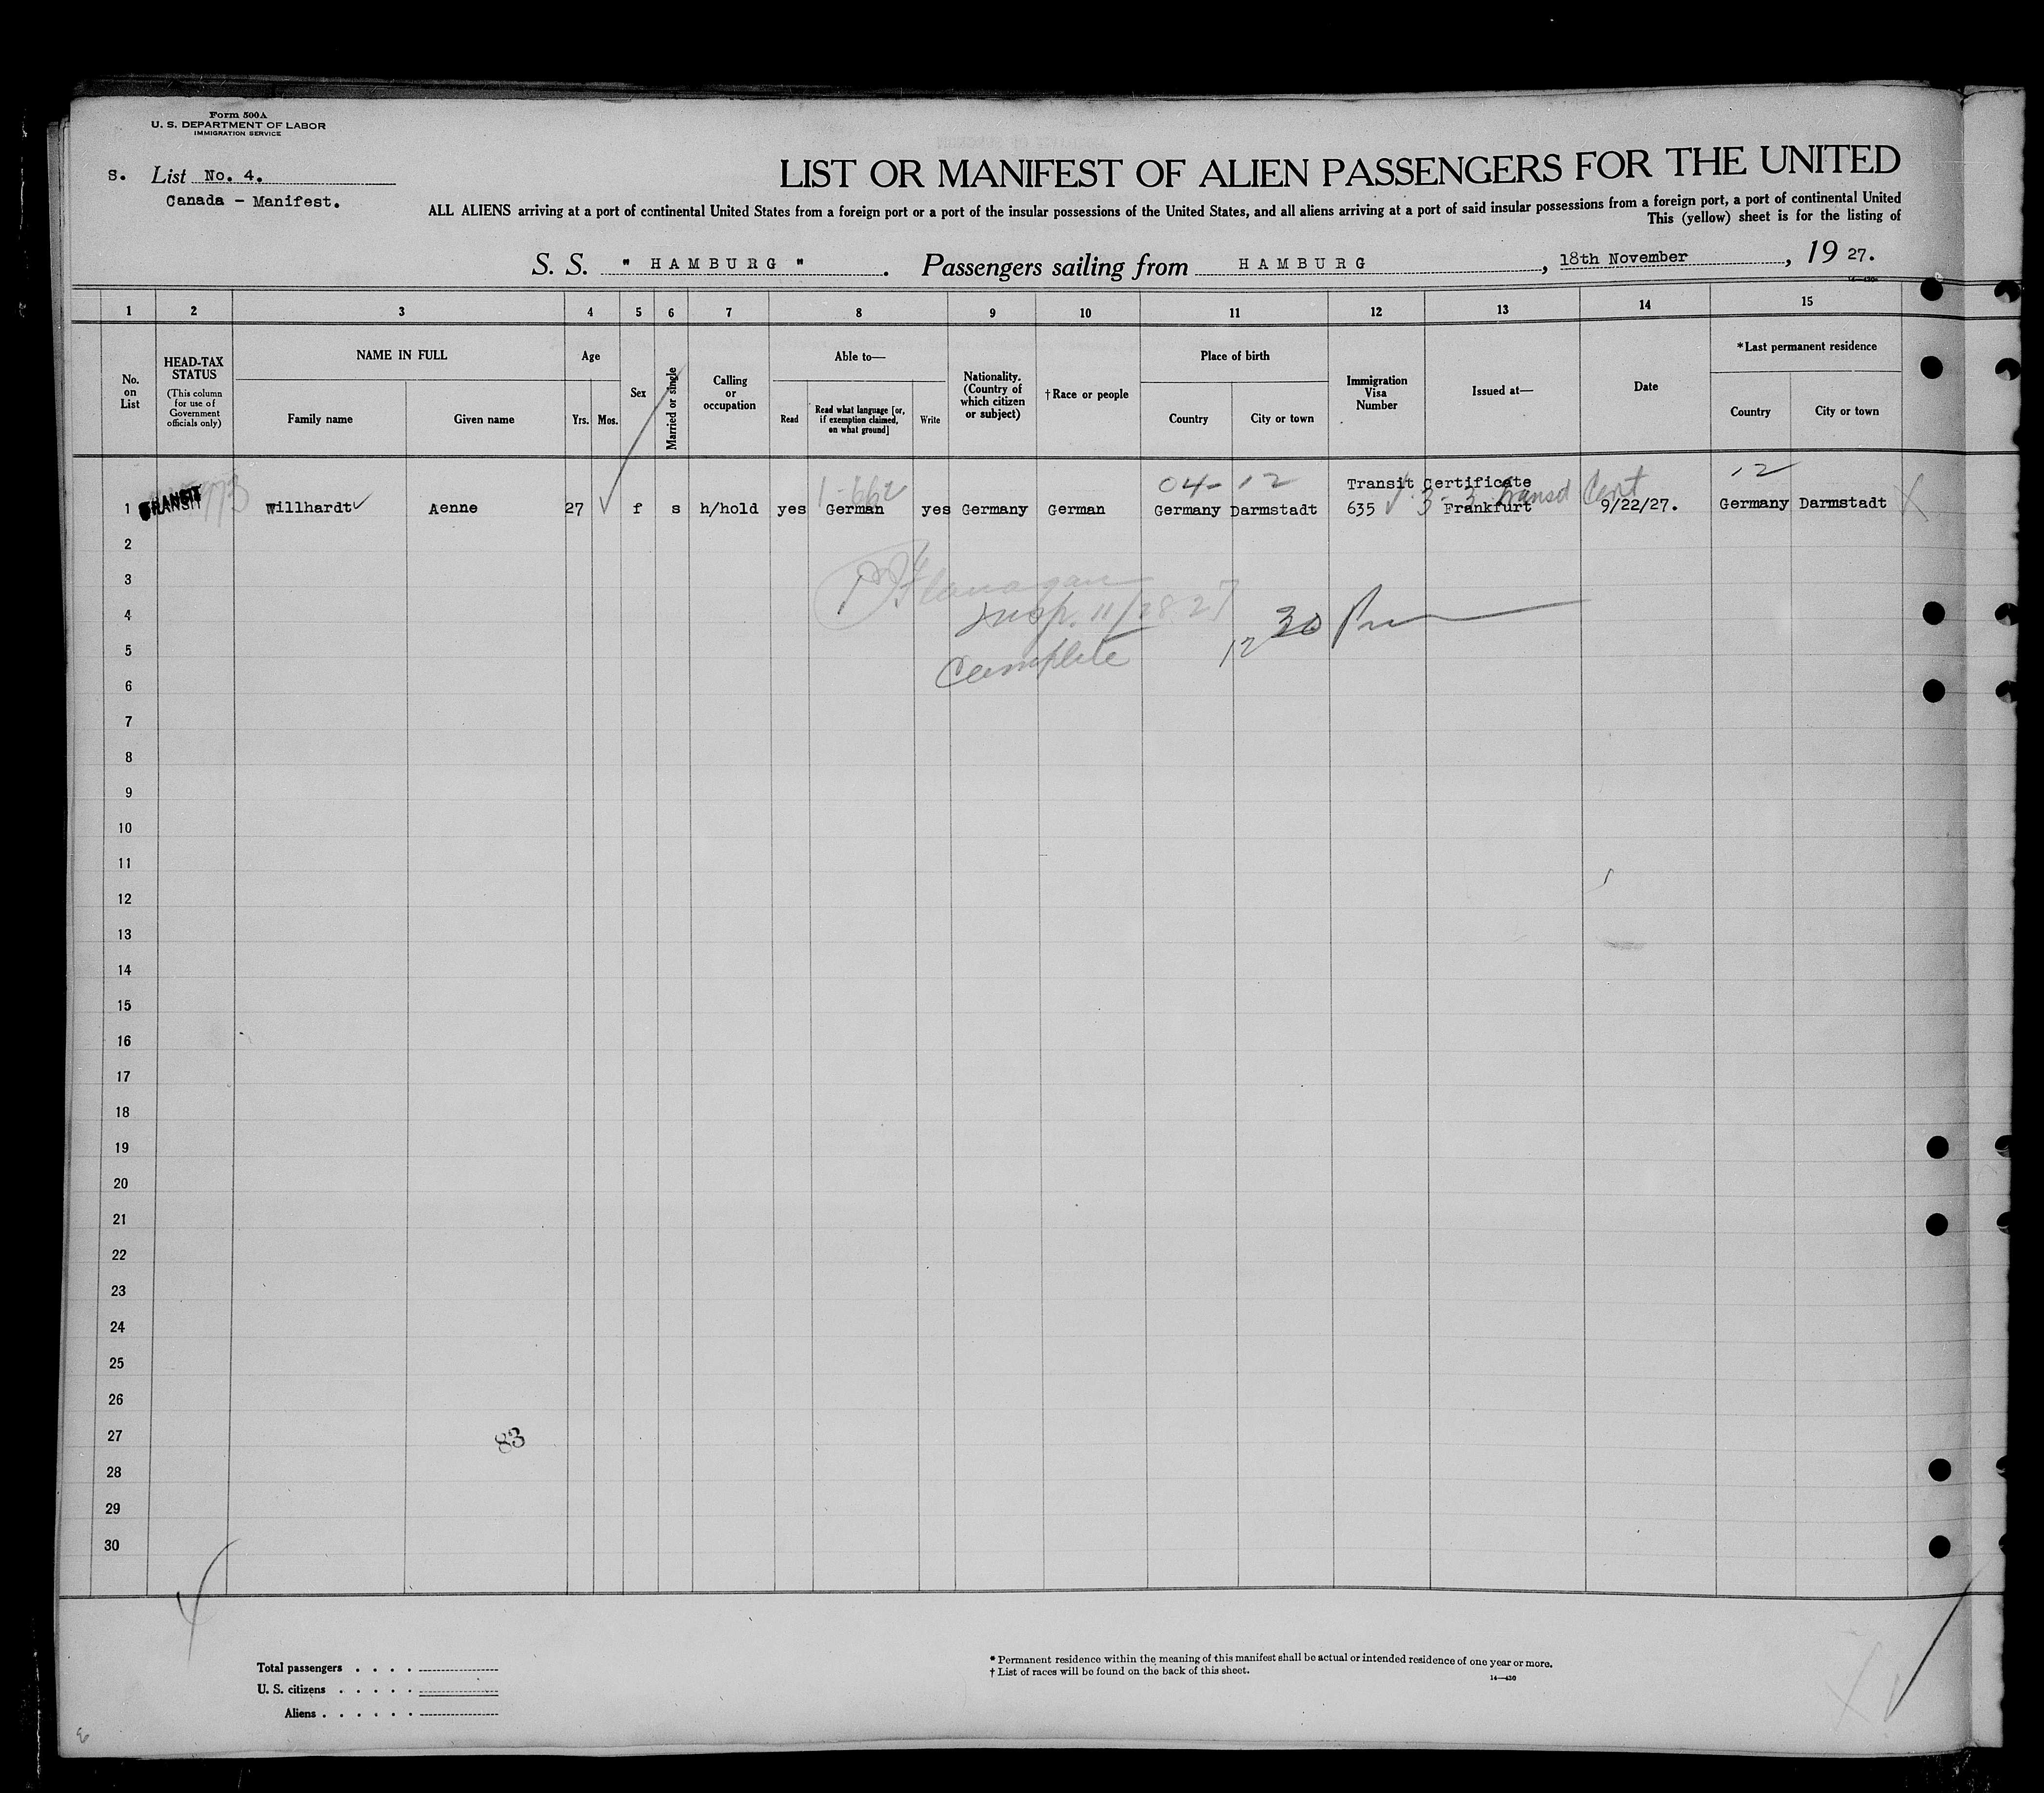 Form 500A
U. S. DEPARTMENT OF LABOR
IMMIGRATION SERVICE
S. List No. 4.
Canada - Manifest.
LIST OR MANIFEST OF ALIEN PASSENGERS FOR THE UNITED
ALL ALIENS arriving at a port of continental United States from a foreign port or a port of the insular possessions of the United States, and all aliens arriving at a port of said insular possessions from a foreign port, a port of continental United
This (yellow) sheet is for the listing of
S. S. " HAMBURG ". Passengers sailing from HAMBURG, 18th November, 19 27.
1 2 3 4 5 6 7 8 9 10 11 12 13 14 15
No. on List
HEAD-TAX STATUS
(This column for use of Government officials only)
NAME IN FULL
Family name Given name
Age
Yrs. Mos.
Sex
Married or single
Calling or occupation
Able to—
Read
Read what language [or, if exemption claimed, on what ground]
Write
Nationality. (Country of which citizen or subject)
†Race or people
Place of birth
Country City or town
Immigration Visa Number
Issued at—
Date
*Last permanent residence
Country City or town
04- 12 12
Transit Certificate
3-3 Transit Cert
1 TRANSIT Willhardt Aenne 27 f s h/hold yes German yes Germany German Germany Darmstadt 635 Frankfurt 9/22/27. Germany Darmstadt X
2
3
Flanagan
4
Insp. 11/28 27
12 30 Pm
5
Complete
6
7
8
9
10
11
12
13
14
15
16
17
18
19
20
21
22
23
24
25
26
27
83
28
29
30
Total passengers . . . .
U. S. citizens . . . . .
Aliens . . . . . .
* Permanent residence within the meaning of this manifest shall be actual or intended residence of one year or more.
† List of races will be found on the back of this sheet.
14—430